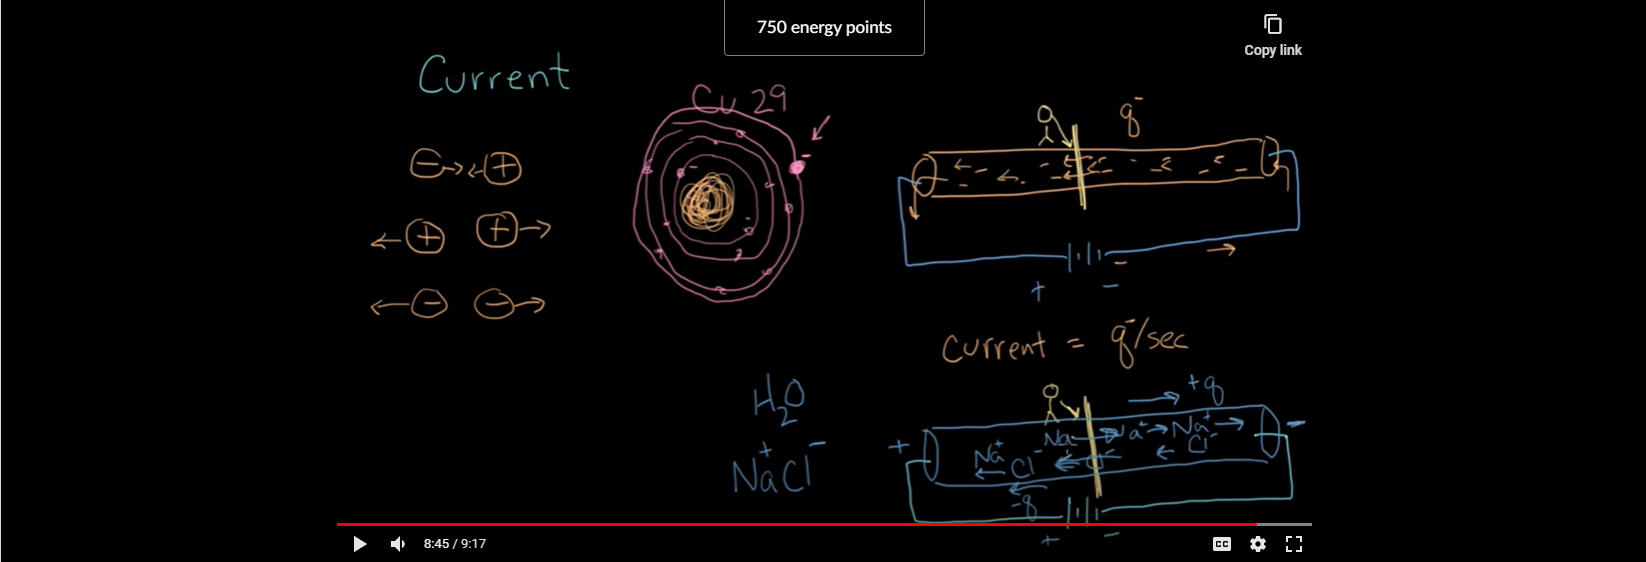 750 energy points
Copy link
Current
Cu 29
q⁻
− +
+ +
− −
+ −
Current = q⁻/sec
H₂O
Na⁺Cl⁻
+q
+ Na⁺ Cl⁻ Na⁺ Na⁺ Cl⁻ −
-q
+ −
8:45 / 9:17
CC